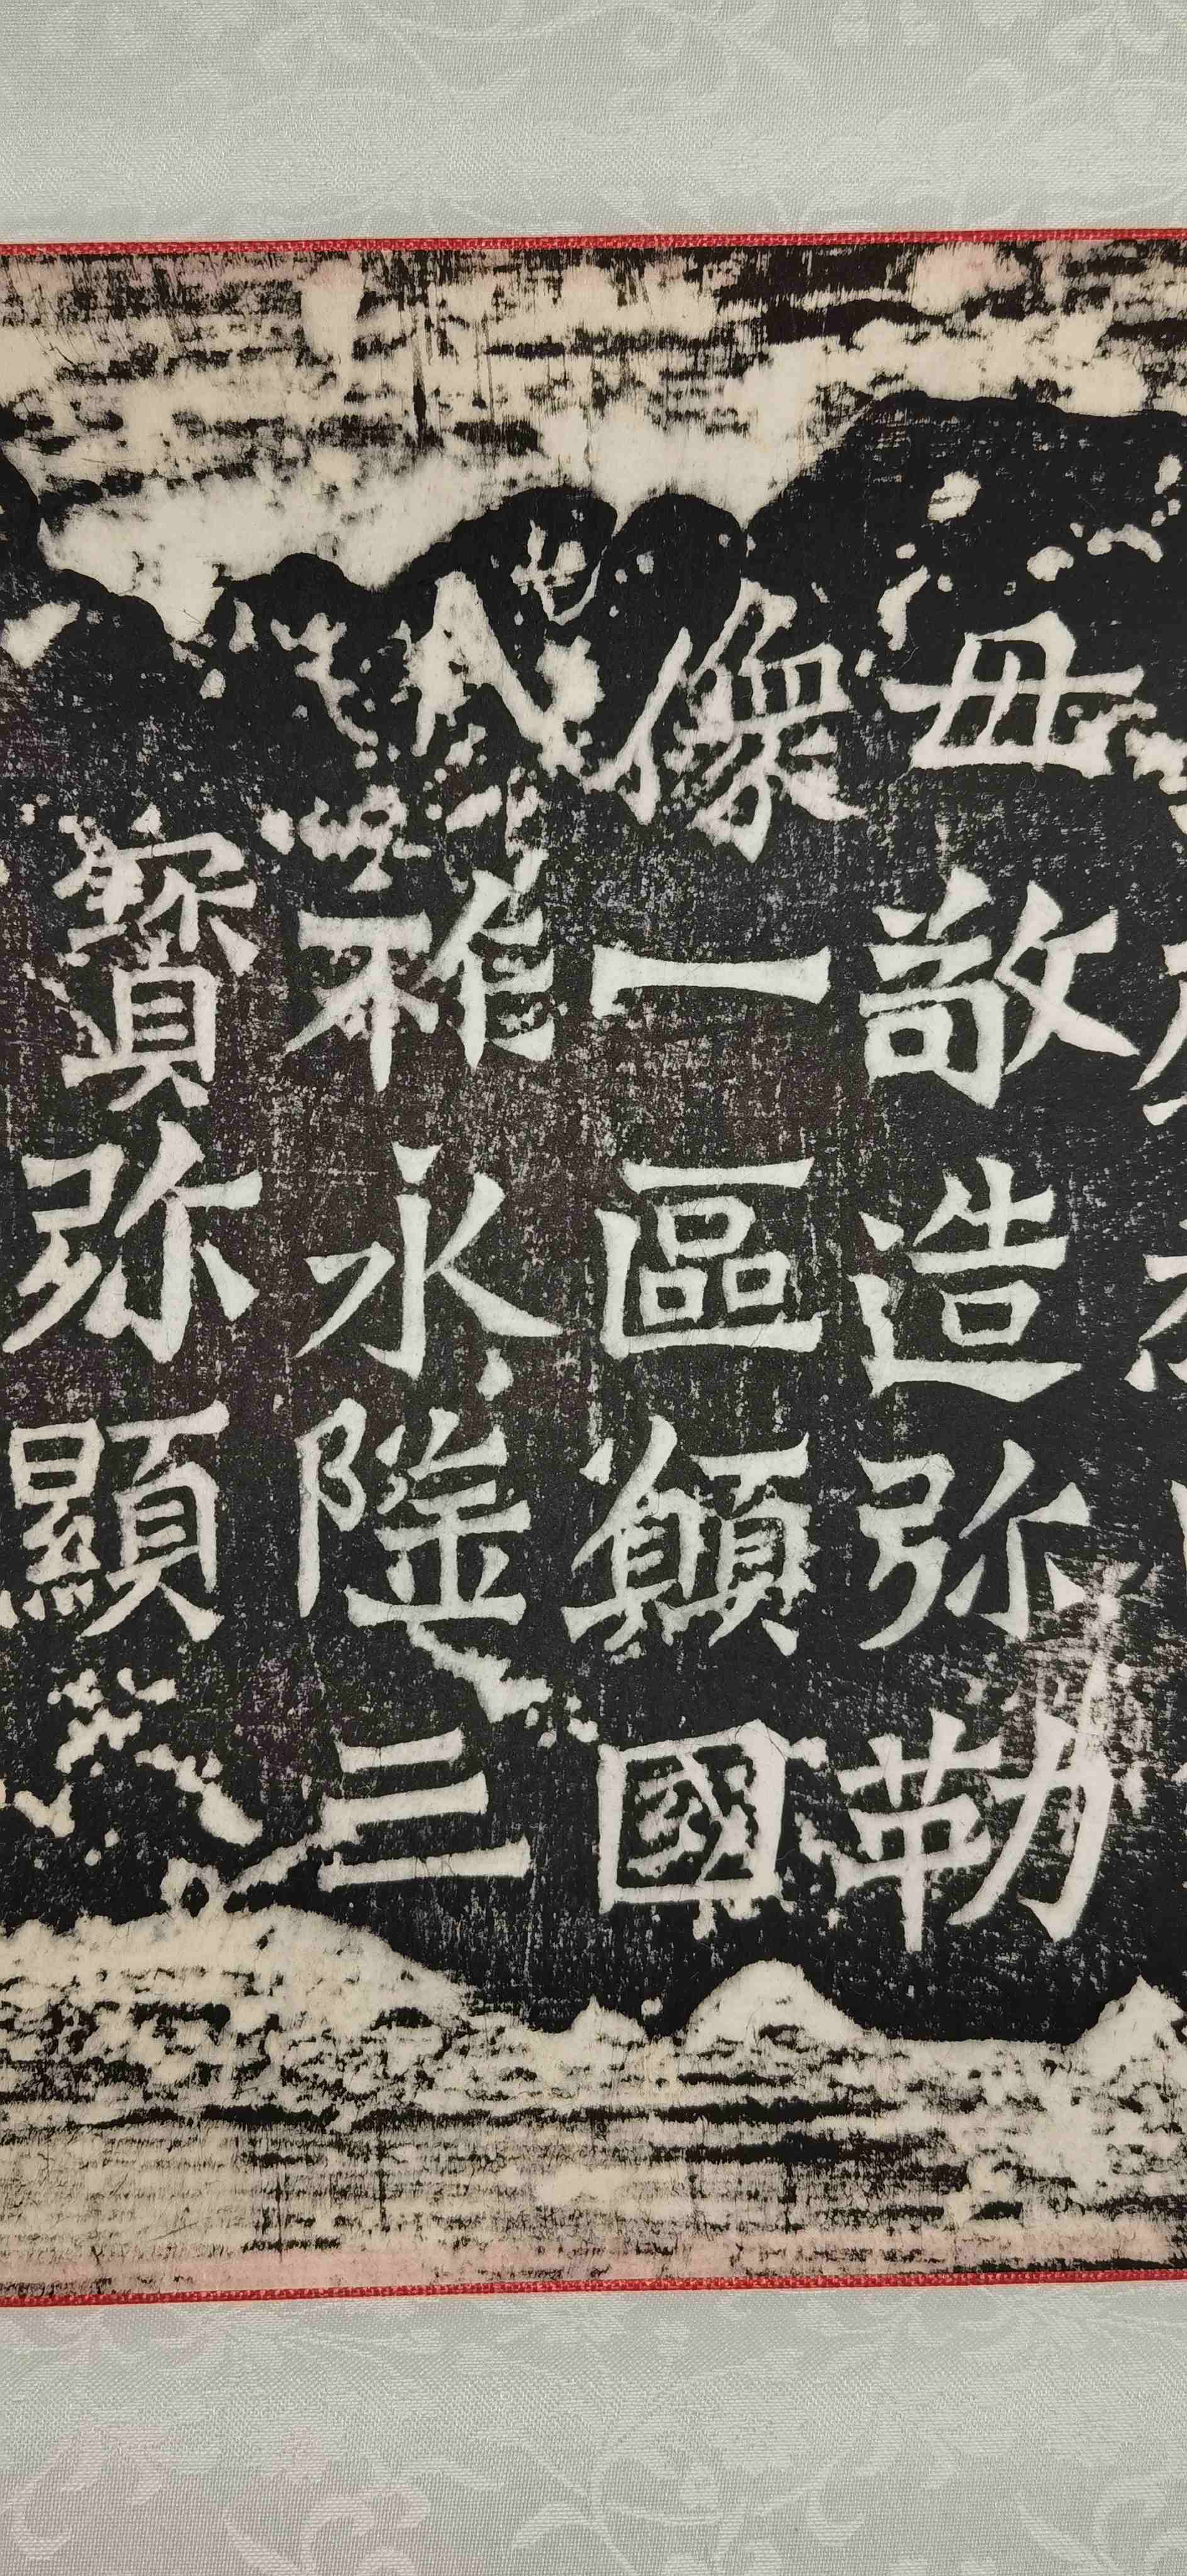 母敬造弥勒
像一區願國
祚永隆三
寶弥顯